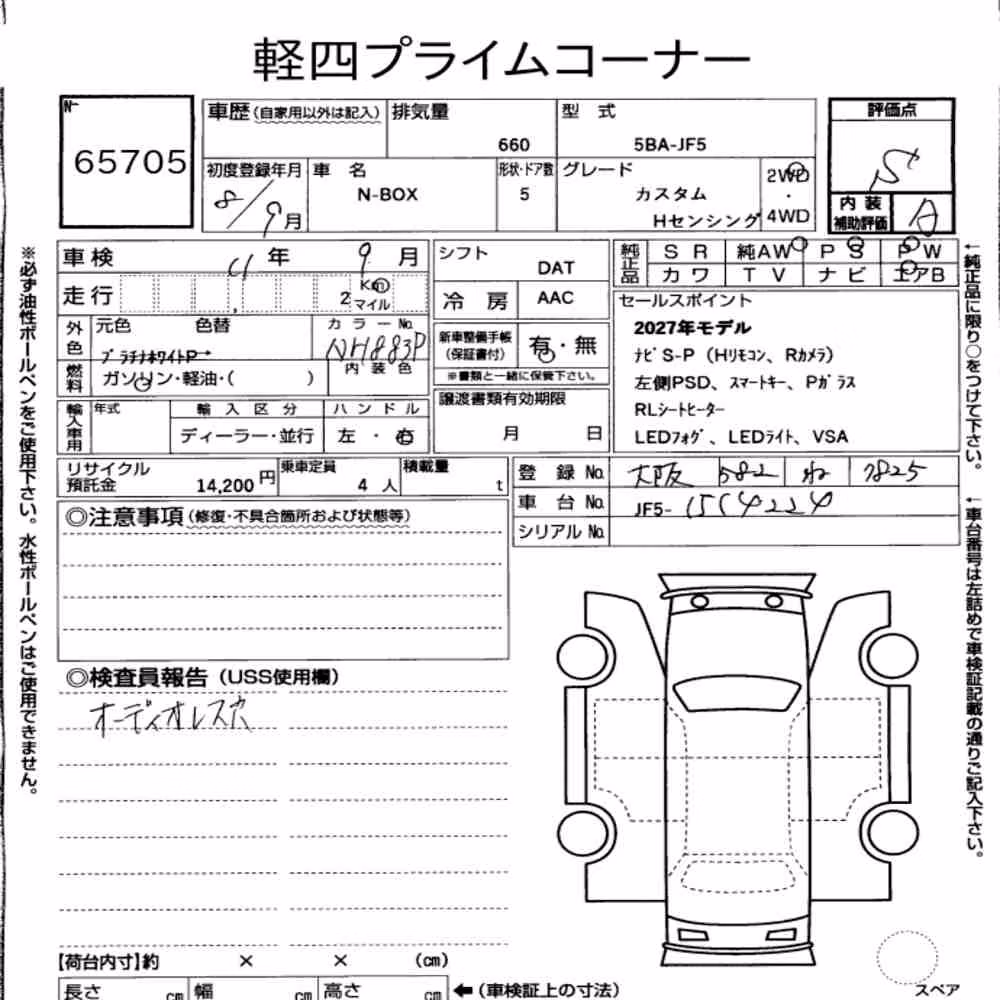 軽四プライムコーナー
№
65705
車歴(自家用以外は記入)
排気量
660
型 式
5BA-JF5
評価点
S
初度登録年月
8/9月
車 名
N-BOX
形状・ドア数
5
グレード
カスタム
Hセンシング
2WD
・
4WD
内 装
補助評価
A
車検
11 年 9 月
走行
2
Km
マイル
シフト
DAT
冷 房
AAC
純正品
S R
純AW
P S
P W
カワ
T V
ナビ
エアB
外色
元色
色替
プラチナホワイトP
カラーNo.
NH883P
内装色
燃料
ガソリン・軽油・( )
新車整備手帳
(保証書付)
有・無
※書類と一緒に保管下さい。
輸入車用
年式
輸入区分
ディーラー・並行
ハンドル
左 ・ 右
譲渡書類有効期限
月 日
セールスポイント
2027年モデル
ナビS-P(Hリモコン、Rカメラ)
左側PSD、スマートキー、Pガラス
RLシートヒーター
LEDフォグ、LEDライト、VSA
リサイクル
預託金
14,200円
乗車定員
4 人
積載量
t
登 録 No.
大阪 582 わ 7825
車 台 No.
JF5-
シリアル No.
◎注意事項(修復・不具合箇所および状態等)
◎検査員報告(USS使用欄)
オーディオレス穴
【荷台内寸】約 × × (cm)
長さ cm
幅 cm
高さ cm
←(車検証上の寸法)
スペア
※必ず油性ボールペンをご使用下さい。水性ボールペンはご使用できません。
←純正品に限り○をつけて下さい。
←車台番号は左詰めで車検証記載の通りご記入下さい。